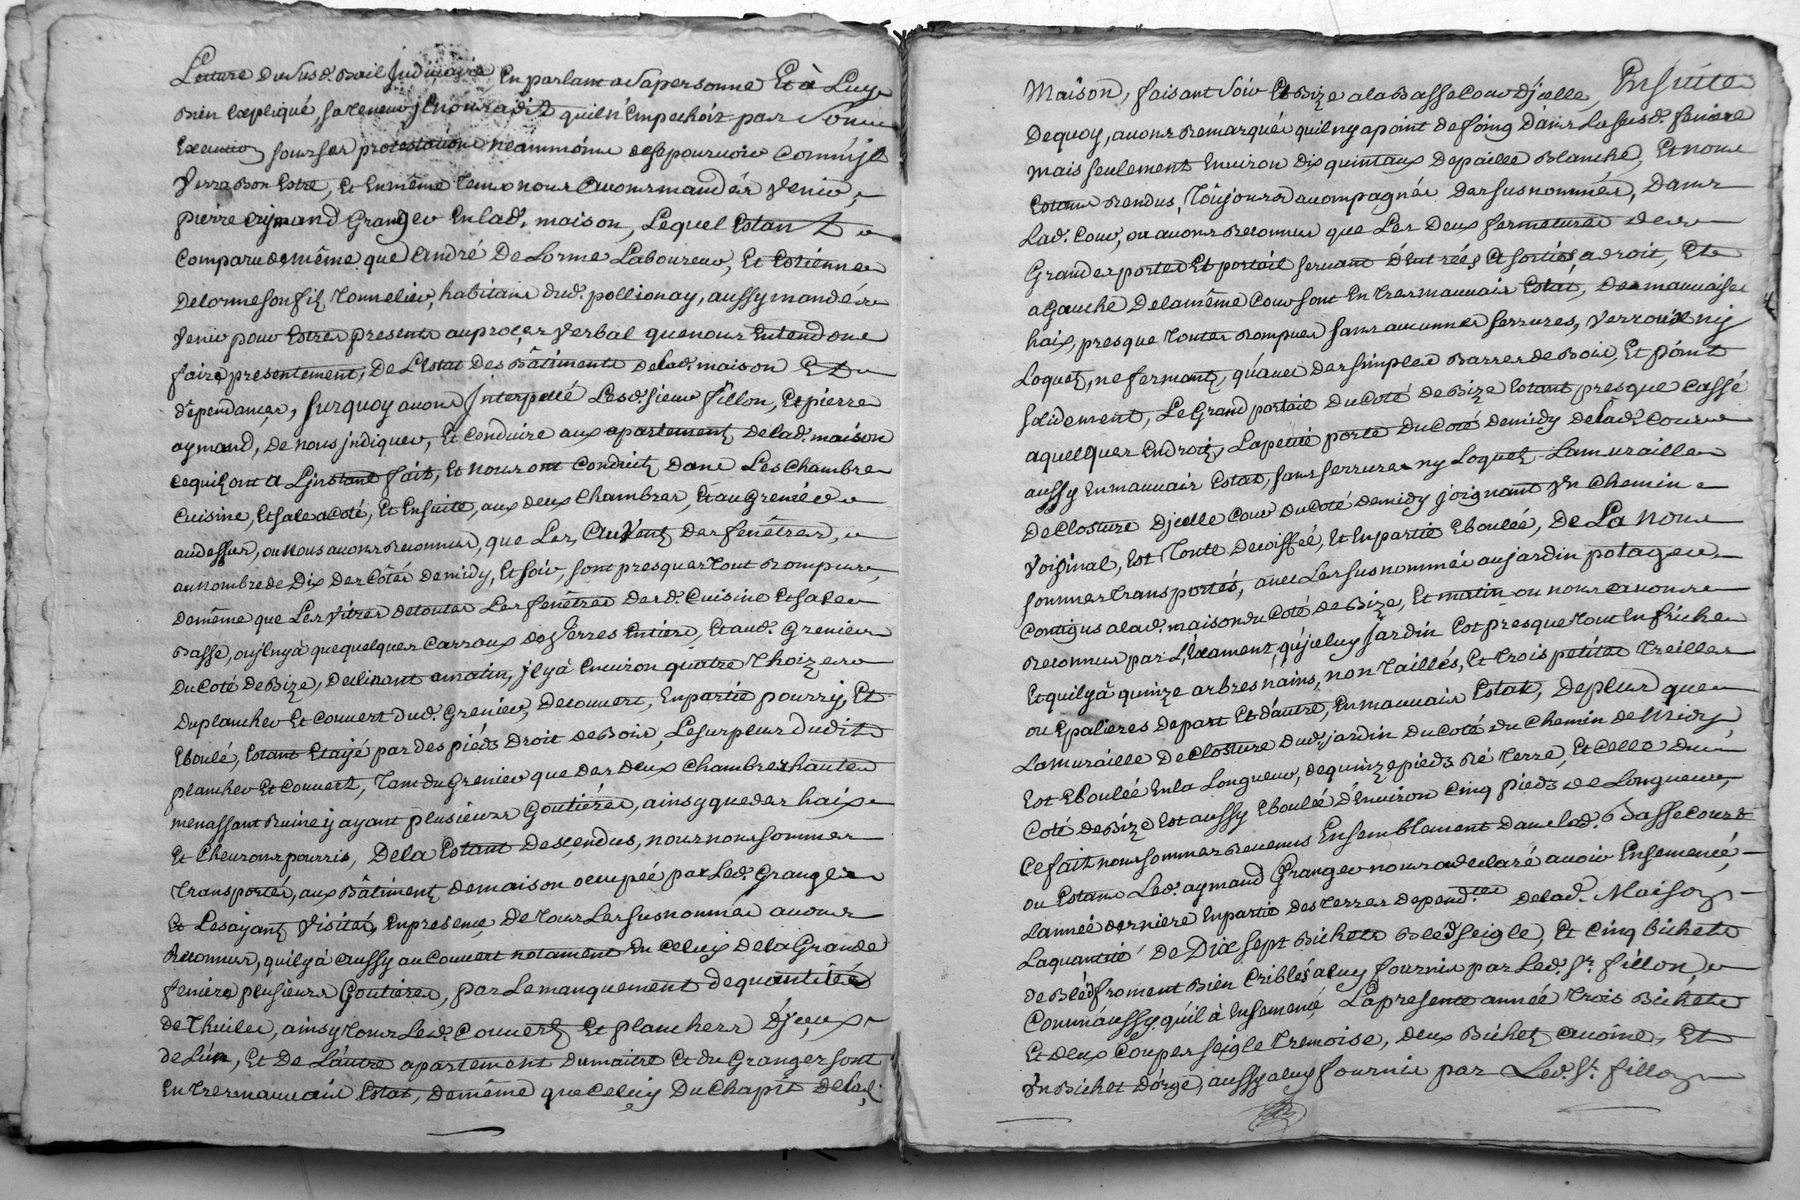 Lecture du susd. Bail Judiciaire En parlant a sa personne Et à Luy
Bien Expliqué, sa teneur jl nous a dit quil n'Empechoit par son
Execution sous ses protestations neanmoins de se pourvoir Comm'jl
Verra Bon Estre, Et En même tems nous Avons mandés Venir,
pierre aymand Granger En lad. maison, Lequel Estant
Comparu de même que André De Lorme Laboureur, Et Estienne
Delorme son fils Tonnelier, habitans dud. pollionay, aussy mandés
Venir pour Estres presents au procez verbal que nous Entendons
faire presentement, De L'Estat Des Bâtiments de lad. maison Et
dépendances, sur quoy avons Interpellé Lesd. sieur fillon, Et pierre
aymand, De nous jndiquer, Et Conduire aux apartements de lad. maison
ce quils ont a L'jnstant fait, Et nous ont Conduits dans Les Chambre
Cuisine, Et sale a Coté, Et Ensuite, aux deux Chambres, Et au Grenier
au dessus, ou Nous avons Reconnus, que Les, Auvents Des fenêtres,
au nombre de Dix Des Côtés de midy, Et soir, sont presques Tout Rompus,
de même que Les Vitres de toutes Les fenêtres Desd. Cuisine Et sale
Basse, ou jl ny à que quelques Carraux de Verres Entiers, Et aud. Grenier
Du Coté De Bize, Declinant a matin, jl y à Environ quatre Thoizes
Du plancher Et Couvert Dud. Grenier, Decouvert, En partie pourry, Et
Eboulé, Estant Etayé par des piéds droit de Bois, Le surplus Dudit
plancher Et Couvert, Tant du Grenier que Des deux Chambres hautes
menassant Ruine y ayant plusieurs Goutières, ainsy que des haix
Et Chevrons pourris, De la Estant descendus, nous nous sommes
transportés, aux Bâtiments de maison ocupée par Led. Granger
Et Les ayant Visités, En presence De tous Les susnommés avons
Reconnus, quil y à Aussy au Couvert notament En Celuy de la Grande
feniere plusieurs Goutieres, par Le manquement de quantités
de Thuiles, ainsy tous Lesd. Couverts Et planchers D'jceux
de L'un, Et De L'autre apartement du maitre Et du Granger sont
En tres mauvais Estat, de même que Celuy Du Chapit de lad.
Maison, faisant soir Et Bize a la Basse Cour D'jcelle, Ensuite
De quoy, avons Remarqués quil ny a point de foing dans La susd. feniere
mais seulement Environ dix quintaux de paille Blanche, Et nous
Estans Rendus, Toujours accompagnés des susnommés, dans
Lad. Cour, ou avons Reconnus que Les Deux fermetures des
Grandes portes Et portail servant d'Entrées Et sorties, a droit, Et
a Gauche De la même Cour sont En tres mauvais Estat, Des mauvaises
haix, presque toutes Rompues sans aucunnes serrures, Verroux ny
Loquets, ne fermants, qu'avec des simples Barres de Bois, Et point
solidement, Le Grand portail Du Coté de Bize Estant presque Cassé
a quelques Endroits, La petite porte Du Coté de midy de lad. Cour
aussy En mauvais Estat, sans serrures ny Loquets. La muraille
De Closture D'jcelle Cour du Coté de midy joignant Vn Chemin
Voisinal, Est Toute Decoiffée, Et En partie Eboulée, De La Nous
sommes transportés, avec Les susnommés au jardin potager
Contigus a lad. maison du Coté de Bize, Et matin ou nous avons
Reconnus par L'Examen, qu'jceluy Jardin Est presque tout En friche
Et quil y à quinze arbres nains, non Taillés, Et trois petites treilles
ou Epalieres de part Et d'autre, En mauvais Estat, De plus que
La muraille De Closture Dud. jardin Du Coté du Chemin de Midy
Est Eboulée En la Longueur, de quinze pieds Ré Terre, Et Celle du
Coté de Bize Est aussy Eboulée d'Environ Cinq pieds de Longueur,
Ce fait nous sommes Revenus Ensemblement dans lad. Basse Court
ou Estans Led. aymand Granger nous a declaré avoir Ensemencé
L'année derniere En partie des terres depend.tes de lad. Maison
La quantité De Dix sept Bichets Bled seigle, Et Cinq Bichets
de Bléd froment Bien Criblés a luy fournis par Led. Sr. fillon,
Comm'aussy qu'il à Ensemencé La presente année trois Bichets
Et deux Coupes seigle tremoise, deux Bichets avoine, Et
Vn Bichet d'orge, aussy a luy fournis par Led. Sr. fillon